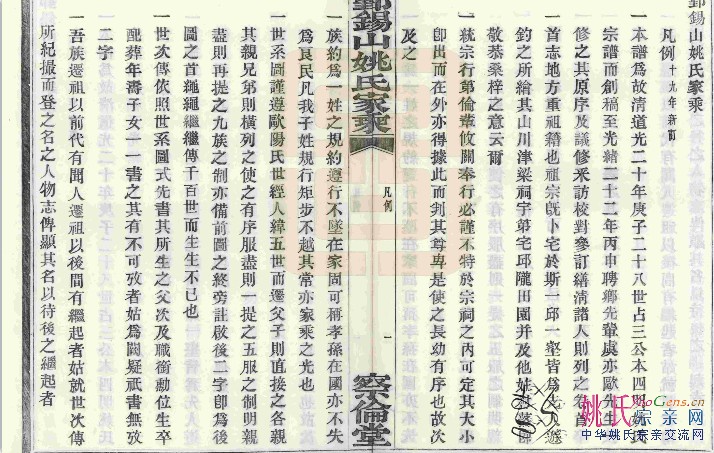 鄞錫山姚氏家乘
凡例 十九年新訂
一本譜爲故清道光二十年庚子二十八世占三公本四明姚氏
宗譜而創稿至光緒二十二年丙申聘鄉先輩虞亦歐先生
修之其原序及議修釆訪校對參訂繕清諸人則列之卷首
一首志地方重祖籍也祖宗旣卜宅於斯一邱一壑皆爲先人遺
鈞之所繪其山川津梁祠宇第宅邱隴田園并及他姓
敬恭桑梓之意云爾
一統宗行第倫輩攸關奉行必謹不特於宗祠之內可定其大小
卽出而在外亦得據此而到其尊卑是使之長幼有序也故次
及之
鄞錫山姚氏家乘
凡例
一
察倫堂
一族約爲一姓之規約遵行不墜在家固可稱孝孫在國亦不失
爲良民凡我子姓規行矩步不越其常亦家乘之光也
一世系圖謹遵歐陽氏世經人緯五世而遷父子則直接之各親
其親兄弟則橫列之使之有序服盡則一提之五服之制明親
盡則再提之九族之制亦備前圖之終旁註啟後二字卽爲後
圖之首繩繩繼繼傳千百世而生生不已也
一世次傳依照世系圖式先書其所生之父次及職銜勳位生卒
配葬年壽子女一一書之其有不可攷者姑爲闕疑祇書無攷
二字
一吾族遷祖以前代有聞人遷祖以後間有繼起者姑就世次傳
所紀撮而登之名之人物志傳顯其名以待後之繼起者
姚氏宗亲网
YaoGens.cn
中华姚氏宗亲交流网